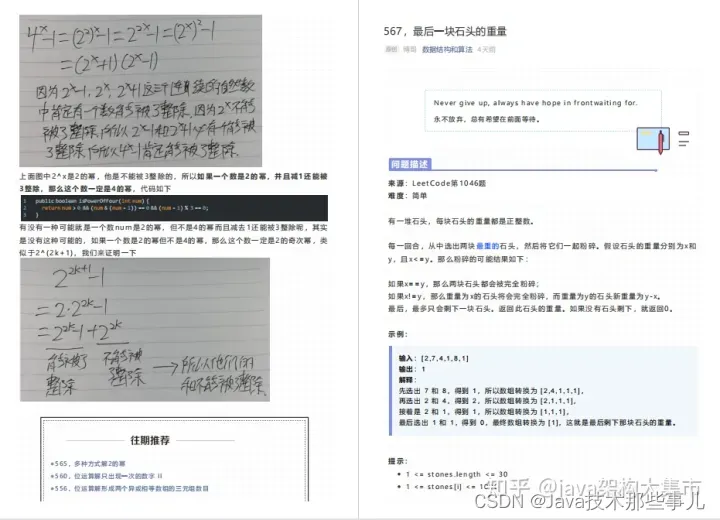 4^x-1=(2²)^x-1=2^2x-1=(2^x)²-1
=(2^x+1)(2^x-1)
因为2^x-1, 2^x, 2^x+1这三个连续的自然数
中肯定有一个数能被3整除,因为2^x不能
被3整除,所以2^x-1和2^x+1必有一个能被
3整除,所以4^x-1肯定能被3整除.
上面图中2^x是2的幂,他是不能被3整除的,所以如果一个数是2的幂,并且减1还能被
3整除,那么这个数一定是4的幂,代码如下
1 public boolean isPowerOfFour(int num) {
2 return num > 0 && (num & (num - 1)) == 0 && (num - 1) % 3 == 0;
3 }
有没有一种可能就是一个数num是2的幂,但不是4的幂而且减去1还能被3整除呢,其实
是没有这种可能的,如果一个数是2的幂但不是4的幂,那么这个数一定是2的奇次幂,类
似于2^(2k+1),我们来证明一下
2^2k+1-1
=2·2^2k-1
=2^2k-1+2^2k
能被3
整除
不能被
整除
→所以他们的
和不能被3整除.
往期推荐
•565,多种方式解2的幂
•560,位运算解只出现一次的数字 II
•556,位运算解形成两个异或相等数组的三元组数目
567,最后一块石头的重量
数据结构和算法 4天前
Never give up, always have hope in frontwaiting for.
永不放弃,总有希望在前面等待。
问题描述
来源:LeetCode第1046题
难度:简单
有一堆石头,每块石头的重量都是正整数。
每一回合,从中选出两块最重的石头,然后将它们一起粉碎。假设石头的重量分别为x和
y,且x<=y。那么粉碎的可能结果如下:
如果x==y,那么两块石头都会被完全粉碎;
如果x!=y,那么重量为x的石头将会完全粉碎,而重量为y的石头新重量为y-x。
最后,最多只会剩下一块石头。返回此石头的重量。如果没有石头剩下,就返回0。
示例:
输入:[2,7,4,1,8,1]
输出:1
解释:
先选出 7 和 8,得到 1,所以数组转换为 [2,4,1,1,1],
再选出 2 和 4,得到 2,所以数组转换为 [2,1,1,1],
接着是 2 和 1,得到 1,所以数组转换为 [1,1,1],
最后选出 1 和 1,得到 0,最终数组转换为 [1],这就是最后剩下那块石头的重量。
提示:
• 1 <= stones.length <= 30
• 1 <= stones[i] <=
知乎 @java架构大集市
CSDN @Java技术那些事儿